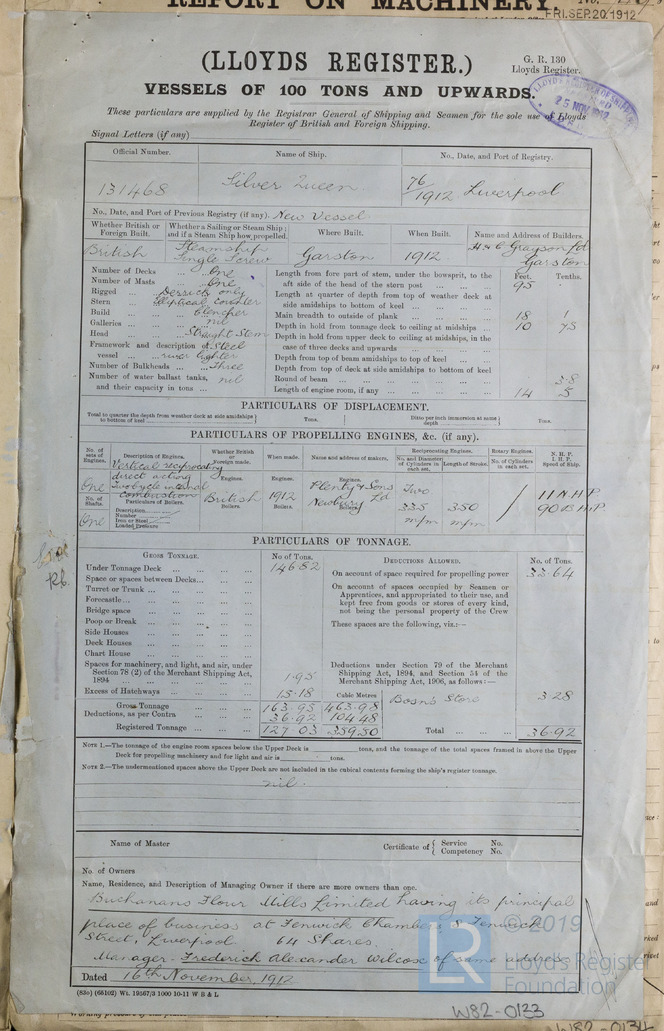 REPORT ON MACHINERY. No.
FRI. SEP. 20/1912
(LLOYDS REGISTER.)
G. R. 130
Lloyds Register.
VESSELS OF 100 TONS AND UPWARDS.
25 NOV 1912
These particulars are supplied by the Registrar General of Shipping and Seamen for the sole use of Lloyds
Register of British and Foreign Shipping.
Signal Letters (if any)
Official Number. Name of Ship. No., Date, and Port of Registry.
131468 Silver Queen 76/1912 Liverpool
No., Date, and Port of Previous Registry (if any). New Vessel
Whether British or Foreign Built. Whether a Sailing or Steam Ship; and if a Steam Ship how propelled. Where Built. When Built. Name and Address of Builders.
British Steamship Single Screw Garston 1912 H & C Grayson Ld Garston
Number of Decks One
Number of Masts One
Rigged Derrick only
Stern Elliptical counter
Build Clencher
Galleries nil
Head Straight Stem
Framework and description of vessel Steel river lighter
Number of Bulkheads Three
Number of water ballast tanks, and their capacity in tons nil
Feet. Tenths.
Length from fore part of stem, under the bowsprit, to the aft side of the head of the stern post 95
Length at quarter of depth from top of weather deck at side amidships to bottom of keel
Main breadth to outside of plank 18 1
Depth in hold from tonnage deck to ceiling at midships 10 45
Depth in hold from upper deck to ceiling at midships, in the case of three decks and upwards
Depth from top of beam amidships to top of keel
Depth from top of deck at side amidships to bottom of keel
Round of beam 38
Length of engine room, if any 14 5
PARTICULARS OF DISPLACEMENT.
Total to quarter the depth from weather deck at side amidships to bottom of keel Tons. Ditto per inch immersion at same depth Tons.
PARTICULARS OF PROPELLING ENGINES, &c. (if any).
No. of sets of Engines. Description of Engines. Whether British or Foreign made. When made. Name and address of makers. Reciprocating Engines. Rotary Engines. N. H. P. I. H. P. Speed of Ship.
No. and Diameter of Cylinders in each set. Length of Stroke. No. of Cylinders in each set.
One Vertical reciprocating direct acting Two cycle internal combustion
Engines. Engines. Engines.
British 1912 Plenty & Sons Ld Newbury Two
335 m/m 350 m/m
11 N.H.P
90 B.H.P
No. of Shafts. Particulars of Boilers.
One Description
Number
Iron or Steel
Loaded Pressure
Boilers. Boilers. Boilers.
PARTICULARS OF TONNAGE.
Gross Tonnage. No of Tons. Deductions Allowed. No. of Tons.
Under Tonnage Deck 146 82
Space or spaces between Decks
Turret or Trunk
Forecastle
Bridge space
Poop or Break
Side Houses
Deck Houses
Chart House
Spaces for machinery, and light, and air, under Section 78 (2) of the Merchant Shipping Act, 1894 1.95
Excess of Hatchways 15.18
Cubic Metres
Gross Tonnage 163 95 463.98
Deductions, as per Contra 36.92 104 48
Registered Tonnage 127 03 359.50
On account of space required for propelling power 33.64
On account of spaces occupied by Seamen or Apprentices, and appropriated to their use, and kept free from goods or stores of every kind, not being the personal property of the Crew
These spaces are the following, viz.:—
Deductions under Section 79 of the Merchant Shipping Act, 1894, and Section 54 of the Merchant Shipping Act, 1906, as follows:—
Bosns Store 3 28
Total 36.92
Note 1.—The tonnage of the engine room spaces below the Upper Deck is tons, and the tonnage of the total spaces framed in above the Upper
Deck for propelling machinery and for light and air is tons.
Note 2.—The undermentioned spaces above the Upper Deck are not included in the cubical contents forming the ship's register tonnage.
nil.
Name of Master Certificate of { Service No.
Competency No.
No. of Owners
Name, Residence, and Description of Managing Owner if there are more owners than one.
Buchanans Flour Mills Limited having its principal
place of business at Fenwick Chambers 8 Fenwick
Street, Liverpool 64 Shares.
Manager. Frederick Alexander Wilcox of same address
Dated 16th November, 1912
(83o) (66102) Wt. 19567/3 1000 10-11 W B & L
LR © 2019
Lloyd's Register
Foundation
W82-0133
W82-0134